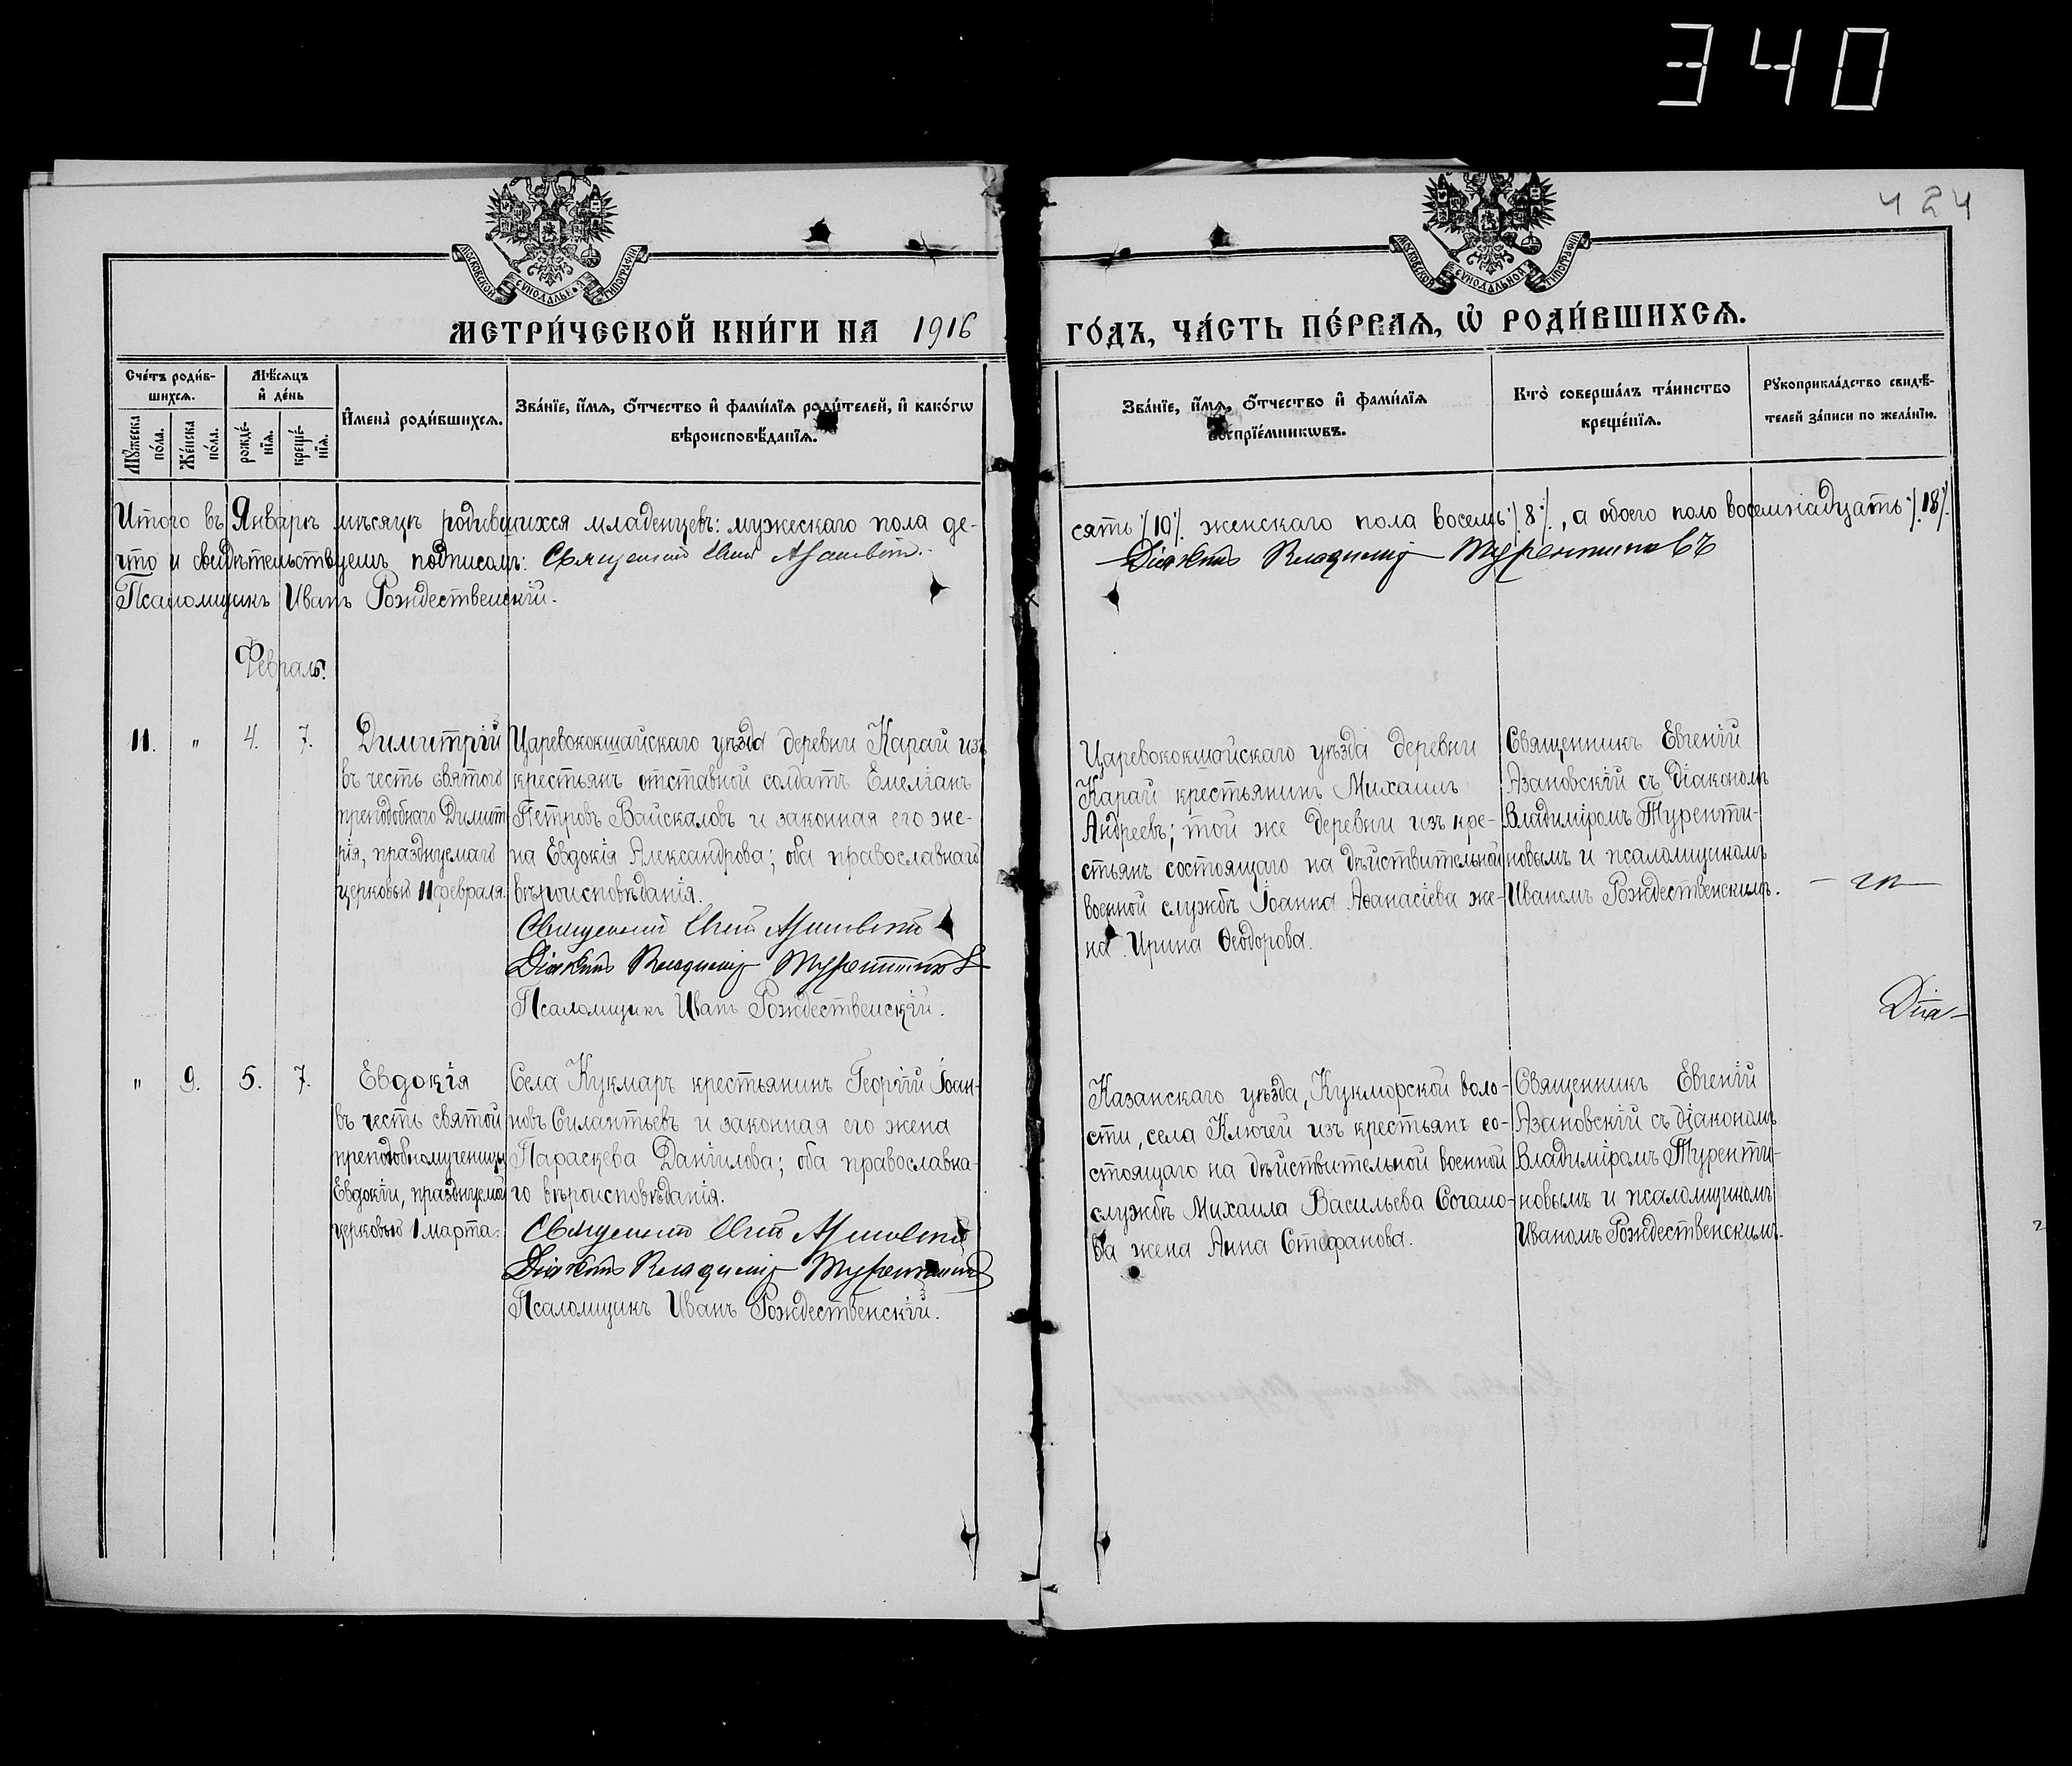 340
424
МОСКОВСКОЙ СѴНОДАЛЬНОЙ ТИПОГРАФІИ
МОСКОВСКОЙ СѴНОДАЛЬНОЙ ТИПОГРАФІИ
МЕТРИ́ЧЕСКОЙ КНИ́ГИ НА 1916
ГО́ДЪ, ЧА́СТЬ ПЕ́РВАѦ, Ѡ҆ РОДИ́ВШИХСѦ.
Сче́тъ роди́в-
шихсѧ.
Мꙋ́жеска по́ла.
Же́нска по́ла.
Мѣ́сѧцъ
и҆ де́нь
рожде́-
нїѧ.
креще́-
нїѧ.
И҆мена̀ роди́вшихсѧ.
Зва́нїе, и҆́мѧ, ѻ҆́тчество и҆ фами́лїѧ роди́телей, и҆ како́гѡ
вѣроисповѣ́данїѧ.
Зва́нїе, и҆́мѧ, ѻ҆́тчество и҆ фами́лїѧ
воспрїе́мникѡвъ.
Кто̀ соверша́лъ та́инство
креще́нїѧ.
Рꙋкоприкла́дство свидѣ́-
телей за́писи по жела́нїю.
Итого въ Январѣ мѣсяцѣ родившихся младенцевъ: мужескаго пола де-
сять ٪10٪ женскаго пола восемь ٪8٪, а обоего пола восемнадцать ٪18٪.
что и свидѣтельствуемъ подписомъ: Священникъ Азановскій.
Діаконъ Владиміръ Турентиновъ
Псаломщикъ Иванъ Рождественскій.
Февраль.
11. " 4. 7.
Димитрій
въ честь святого
преподобнаго Димит-
рія, празднуемаго
церковью 11 февраля.
Царевококшайскаго уѣзда деревни Карай изъ
крестьянъ отставной солдатъ Емеліанъ
Петровъ Вайскаловъ и законная его же-
на Евдокія Александрова; оба православнаго
вѣроисповѣданія.
Священникъ Азановскій
Діаконъ Владиміръ Турентиновъ
Псаломщикъ Иванъ Рождественскій.
Царевококшайскаго уѣзда деревни
Карай крестьянинъ Михаилъ
Андреевъ; той же деревни изъ кре-
стьянъ состоящаго на дѣйствительной
военной службѣ Іоанна Аѳанасіева же-
на Ирина Ѳеодорова.
Священникъ Евгеній
Азановскій съ діакономъ
Владиміромъ Туренти-
новымъ и псаломщикомъ
Иваномъ Рождественскимъ.
Діа-
" 9. 5. 7.
Евдокія
въ честь святой
преподобномученицы
Евдокіи, празднуемой
церковью 1 марта.
Села Кукмаръ крестьянинъ Георгій Іоан-
новъ Силантьевъ и законная его жена
Параскева Даніилова; оба православна-
го вѣроисповѣданія.
Священникъ Азановскій
Діаконъ Владиміръ Турентиновъ
Псаломщикъ Иванъ Рождественскій.
Казанскаго уѣзда, Кукморской воло-
сти, села Ключей изъ крестьянъ со-
стоящаго на дѣйствительной военной
службѣ Михаила Васильева Согало-
ва жена Анна Стефанова.
Священникъ Евгеній
Азановскій съ діакономъ
Владиміромъ Туренти-
новымъ и псаломщикомъ
Иваномъ Рождественскимъ.